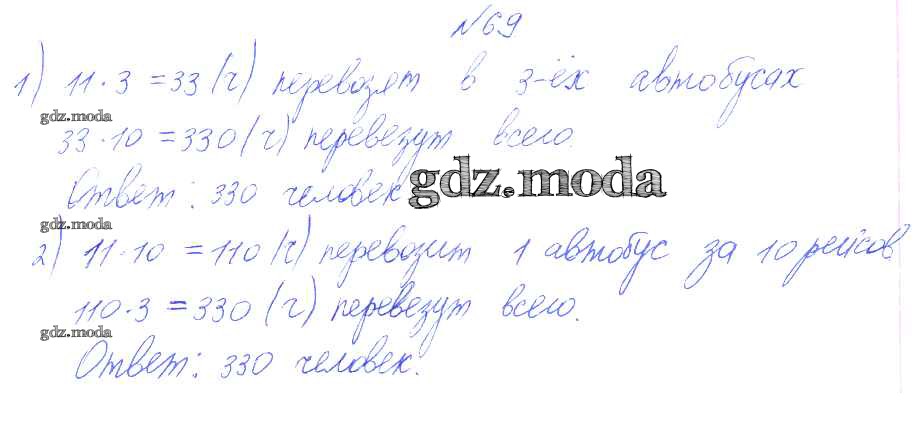 №69
1) 11·3=33 (ч) перевозят в 3-ёх автобусах
gdz.moda
33·10=330(ч) перевезут всего.
Ответ: 330 человек gdz.moda
gdz.moda
2) 11·10=110(ч) перевозит 1 автобус за 10 рейсов
110·3=330 (ч) перевезут всего.
gdz.moda
Ответ: 330 человек.